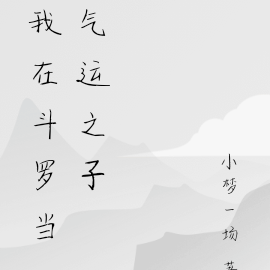 我在斗罗当
气运之子
小梦一场